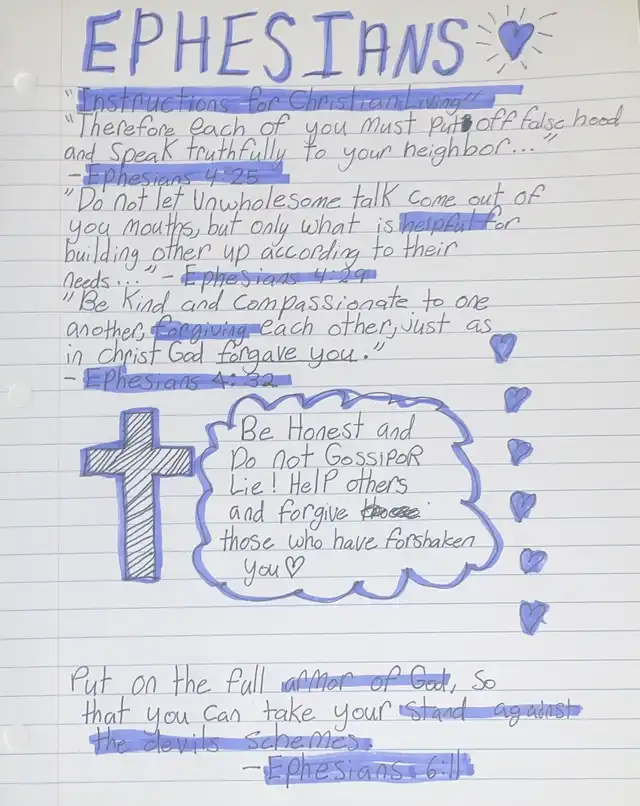 EPHESIANS
"Instructions for Christian Living"
"Therefore each of you must put off false hood
and speak truthfully to your neighbor..."
- Ephesians 4:25
"Do not let unwholesome talk come out of
you mouths, but only what is helpful for
building other up according to their
needs..." - Ephesians 4:29
"Be kind and compassionate to one
another, forgiving each other, just as
in christ God forgave you."
- Ephesians 4:32
Be Honest and
Do not GossipoR
Lie! Help others
and forgive
those who have forshaken
you♡
Put on the full armor of God, so
that you can take your stand against
the devils schemes.
- Ephesians 6:11